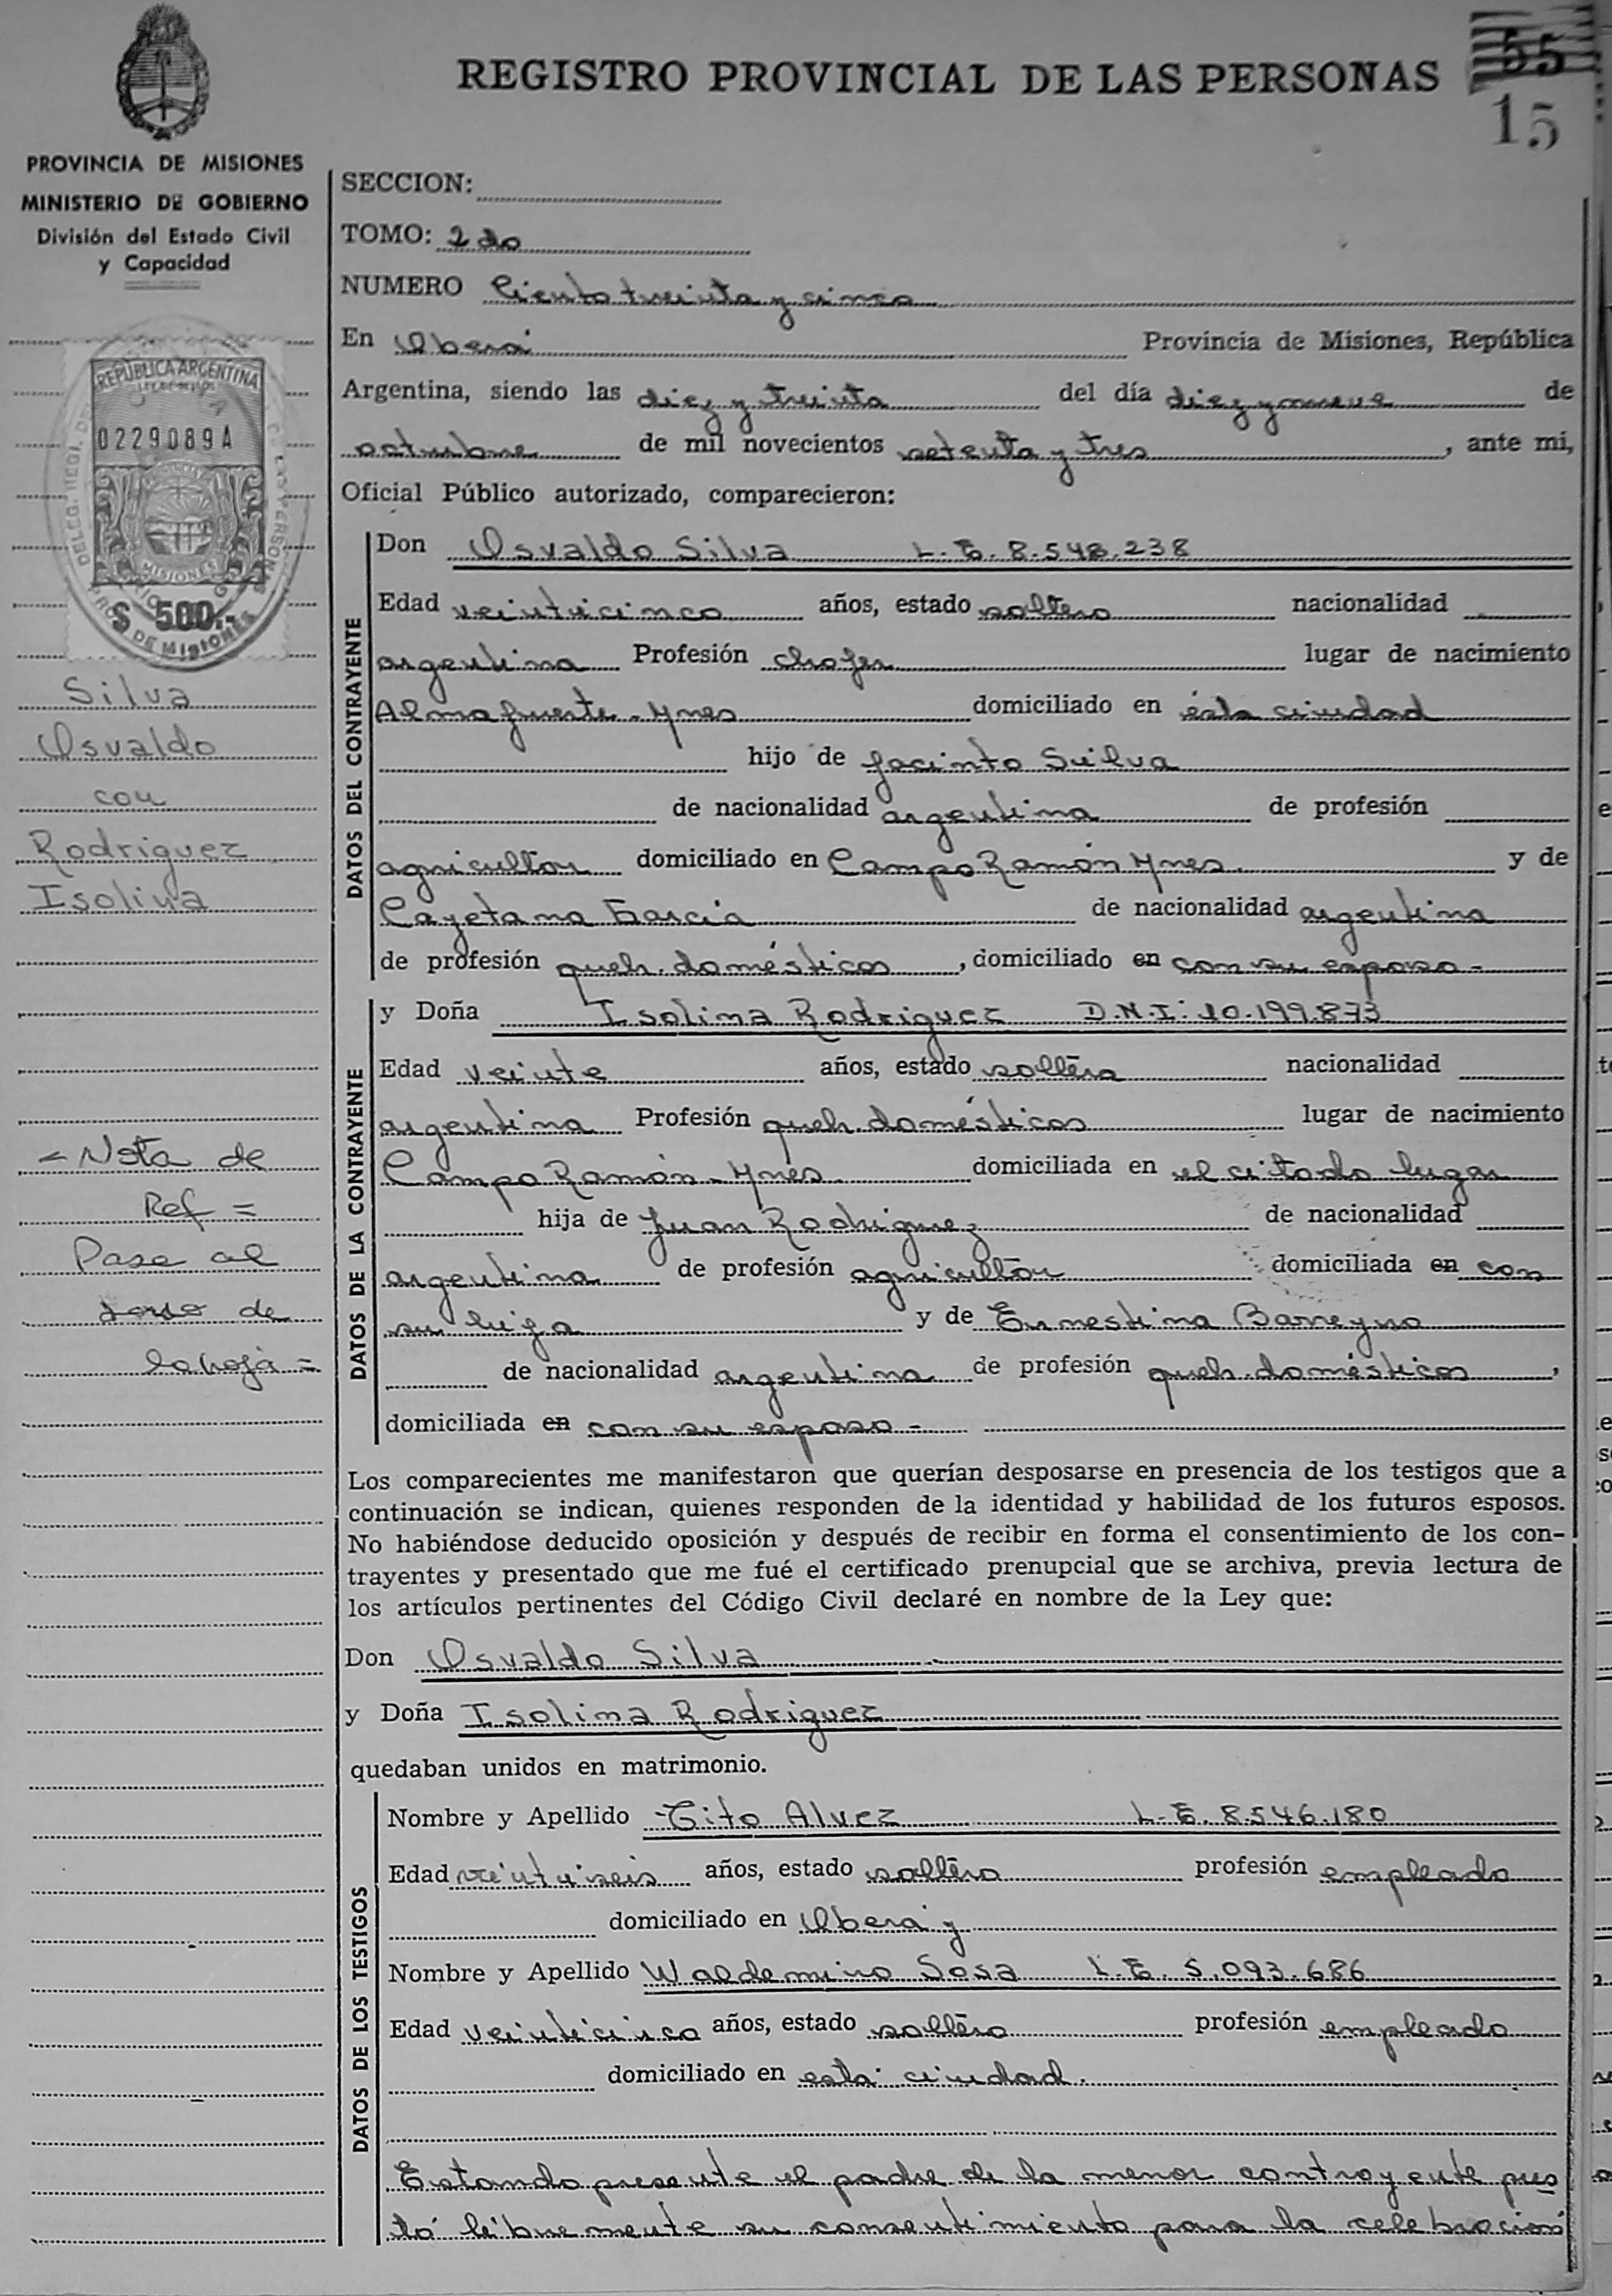 REGISTRO PROVINCIAL DE LAS PERSONAS
55
15
PROVINCIA DE MISIONES
MINISTERIO DE GOBIERNO
División del Estado Civil
y Capacidad
REPUBLICA ARGENTINA
0229089A
MISIONES
$ 500.-
PROV. DE MISIONES
Silva
Osvaldo
con
Rodriguez
Isolina
- Nota de
Ref =
Pasa al
dorso de
la hoja =
SECCION:
TOMO: 2do
NUMERO Ciento treinta y cinco
En Oberá Provincia de Misiones, República
Argentina, siendo las diez y treinta del día diez y nueve de
octubre de mil novecientos setenta y tres, ante mi,
Oficial Público autorizado, comparecieron:
DATOS DEL CONTRAYENTE
Don Osvaldo Silva L.E. 8.548.238
Edad veinticinco años, estado soltero nacionalidad
argentina Profesión chofer lugar de nacimiento
Almafuerte - Mnes domiciliado en ésta ciudad
hijo de Jacinto Silva
de nacionalidad argentina de profesión
agricultor domiciliado en Campo Ramón Mnes y de
Cayetana García de nacionalidad argentina
de profesión queh. domésticos, domiciliado en con su esposo -
DATOS DE LA CONTRAYENTE
y Doña Isolina Rodriguez D.N.I: 10.199.873
Edad veinte años, estado soltera nacionalidad
argentina Profesión queh. domésticos lugar de nacimiento
Campo Ramón - Mnes domiciliada en el citado lugar
hija de Juan Rodriguez de nacionalidad
argentina de profesión agricultor domiciliada en con
su hija y de Ernestina Barreyro
de nacionalidad argentina de profesión queh. domésticos,
domiciliada en con su esposo -
Los comparecientes me manifestaron que querían desposarse en presencia de los testigos que a
continuación se indican, quienes responden de la identidad y habilidad de los futuros esposos.
No habiéndose deducido oposición y después de recibir en forma el consentimiento de los con-
trayentes y presentado que me fué el certificado prenupcial que se archiva, previa lectura de
los artículos pertinentes del Código Civil declaré en nombre de la Ley que:
Don Osvaldo Silva
y Doña Isolina Rodriguez
quedaban unidos en matrimonio.
DATOS DE LOS TESTIGOS
Nombre y Apellido Tito Alvez L.E. 8.546.180
Edad veintiseis años, estado soltero profesión empleado
domiciliado en Oberá y
Nombre y Apellido Waldemiro Sosa L.E. 5.093.686
Edad veinticinco años, estado soltero profesión empleado
domiciliado en esta ciudad.
Estando presente el padre de la menor contrayente pres
tó libremente su consentimiento para la celebración